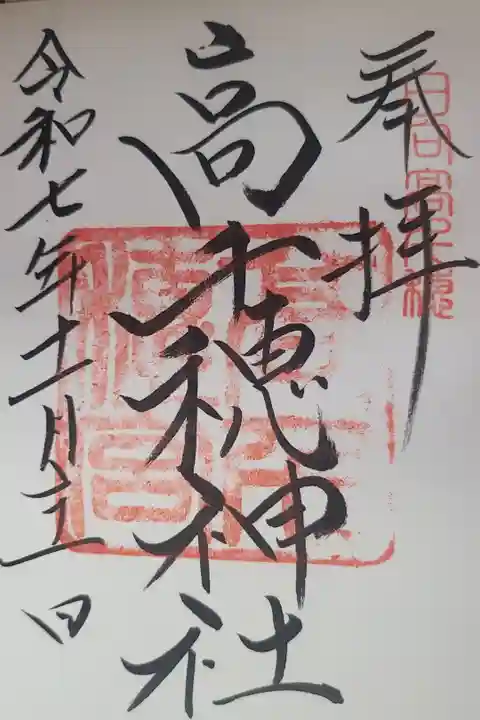 日向高千穂
奉拝
高千穂神社
高千
穂宮
令和七年十一月 日